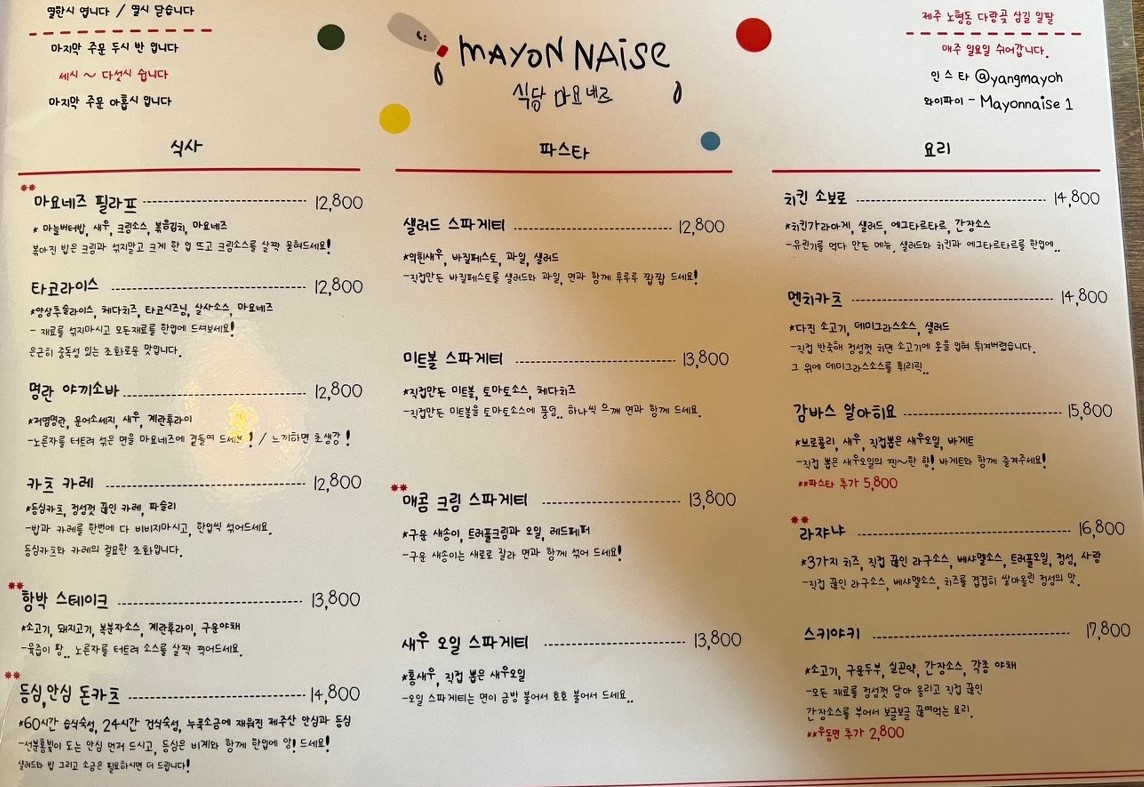 열한시 엽니다 / 열시 닫습니다
마지막 주문 두시 반 입니다
세시 ~ 다섯시 쉽니다
마지막 주문 아홉시 입니다
MAYONNAISE
식당 마요네즈
제주 노형동 다랑곶 삼길 일팔
매주 일요일 쉬어갑니다.
인스타 @yangmayoh
와이파이 - Mayonnaise 1
식사
마요네즈 필라프 12,800
* 마늘버터밥, 새우, 크림소스, 볶음김치, 마요네즈
볶아진 밥은 크림과 섞지말고 크게 한 입 뜨고 크림소스를 살짝 묻혀드세요!
타코라이스 12,800
*양상추슬라이스, 체다치즈, 타코시즈닝, 살사소스, 마요네즈
- 재료를 섞지마시고 모든재료를 한입에 드셔보세요!
은근히 중독성 있는 조화로운 맛입니다.
명란 야끼소바 12,800
*저염명란, 문어소세지, 새우, 계란후라이
-노른자를 터트려 섞은 면을 마요네즈에 곁들여 드세요! / 느끼하면 초생강!
카츠 카레 12,800
*등심카츠, 정성껏 끓인 카레, 파슬리
-밥과 카레를 한번에 다 비비지마시고, 한입씩 섞어드세요.
등심카츠와 카레의 절묘한 조화입니다.
함박 스테이크 13,800
*소고기, 돼지고기, 복분자소스, 계란후라이, 구운야채
-육즙이 팡.. 노른자를 터트려 소스를 살짝 찍어드세요.
등심,안심 돈카츠 14,800
*60시간 습식숙성, 24시간 건식숙성, 누룩소금에 재워진 제주산 안심과 등심
-선분홍빛이 도는 안심 먼저 드시고, 등심은 비계와 함께 한입에 앙! 드세요!
샐러드와 밥 그리고 소금은 필요하시면 더 드립니다!
파스타
샐러드 스파게티 12,800
*익힌새우, 바질페스토, 과일, 샐러드
-직접만든 바질페스토를 샐러드와 과일, 면과 함께 후루루 짭짭 드세요!
미트볼 스파게티 13,800
*직접만든 미트볼, 토마토소스, 체다치즈
-직접만든 미트볼을 토마토소스에 퐁덩.. 하나씩 으깨 면과 함께 드세요.
매콤 크림 스파게티 13,800
*구운 새송이, 트러플크림과 오일, 레드페퍼
-구운 새송이는 새로로 잘라 면과 함께 섞어 드세요!
새우 오일 스파게티 13,800
*홍새우, 직접 뽑은 새우오일
-오일 스파게티는 면이 금방 불어서 호호 불어서 드세요..
요리
치킨 소보로 14,800
*치킨가라아게, 샐러드, 에그타르타르, 간장소스
-유린기를 먹다 만든 메뉴. 샐러드와 치킨과 에그타르타르를 한입에..
멘치카츠 14,800
*다진 소고기, 데미그라스소스, 샐러드
-직접 반죽해 정성껏 치댄 소고기에 옷을 입혀 튀겨버렸습니다.
그 위에 데미그라스소스를 휘리릭..
감바스 알아히요 15,800
*브로콜리, 새우, 직접뽑은 새우오일, 바게트
-직접 뽑은 새우오일의 찐~한 향! 바게트와 함께 즐겨주세요!
**파스타 추가 5,800
라쟈냐 16,800
*3가지 치즈, 직접 끓인 라구소스, 베샤멜소스, 트러플오일, 정성, 사랑
-직접 끓인 라구소스, 베샤멜소스, 치즈를 겹겹히 쌓아올린 정성의 맛.
스키야키 17,800
*소고기, 구운두부, 실곤약, 간장소스, 각종 야채
-모든 재료를 정성껏 담아 올리고 직접 끓인
간장소스를 부어서 보글보글 끓여먹는 요리.
**우동면 추가 2,800